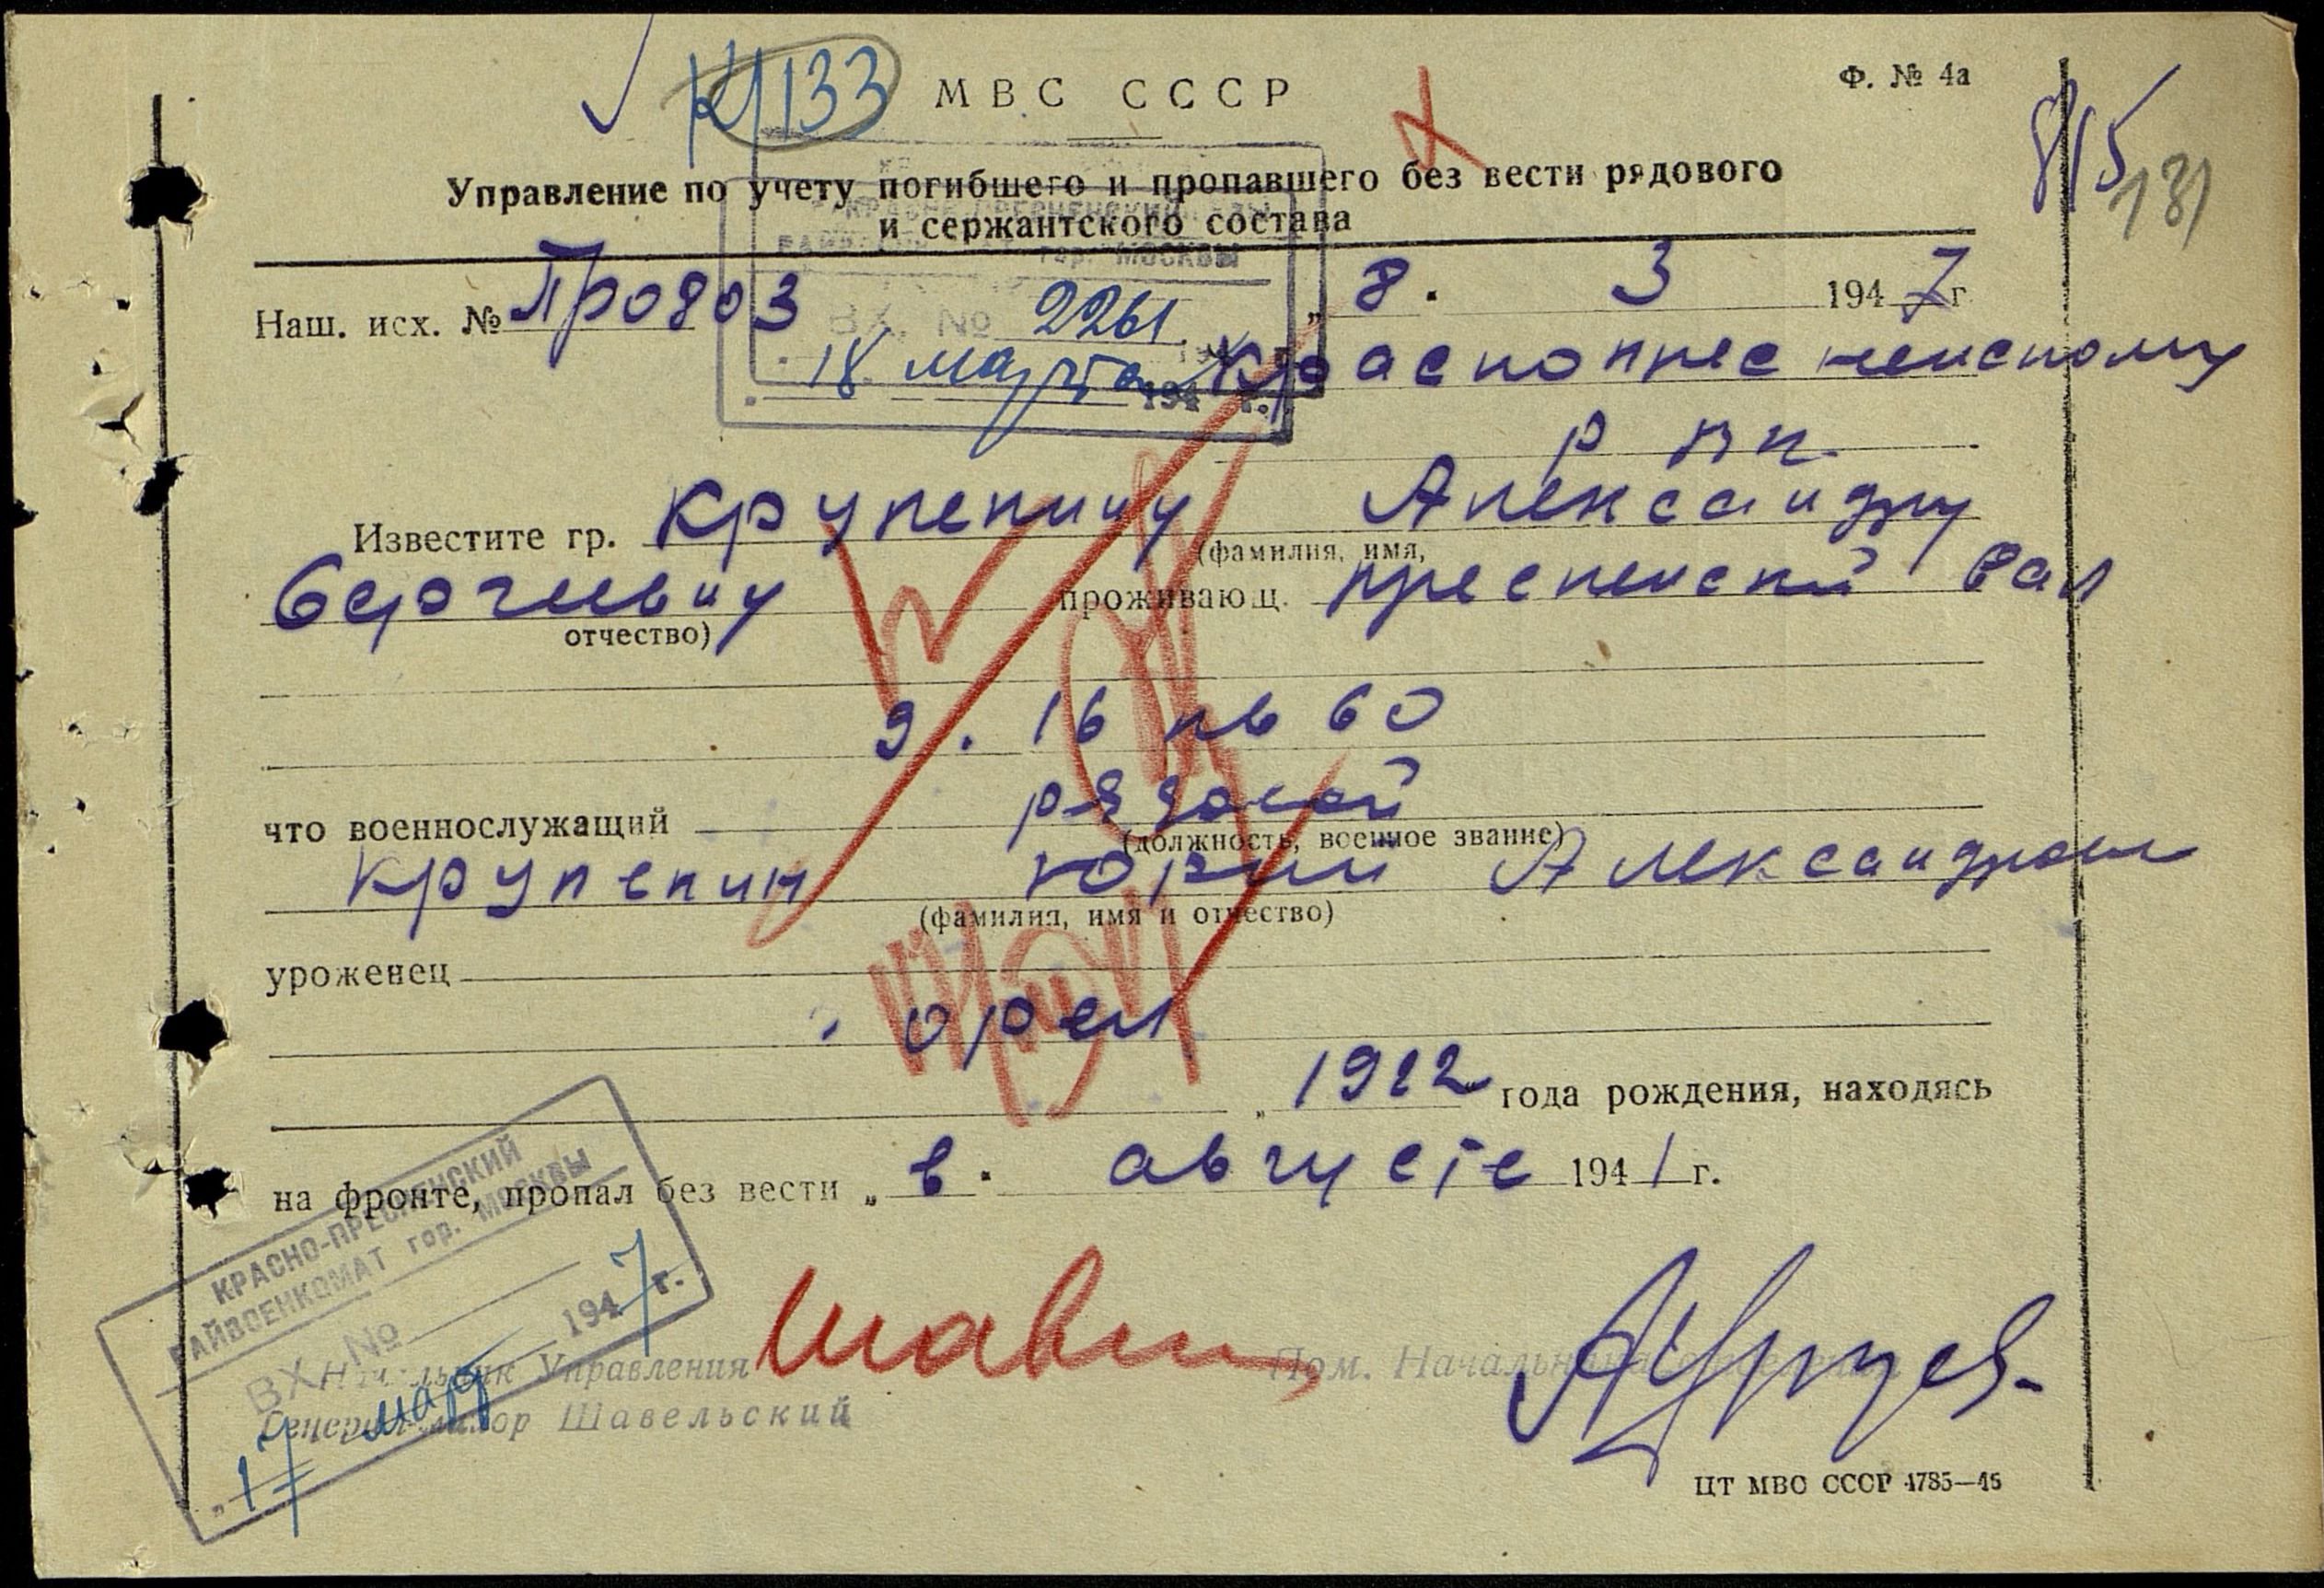 К/133
МВС СССР
Ф. № 4а
8/15
131
Управление по учету погибшего и пропавшего без вести рядового
и сержантского состава
КРАСНО-ПРЕСНЕНСКИЙ
РАЙВОЕНКОМАТ гор. МОСКВЫ
ВХ. № 2261
18 марта 194 г.
Наш. исх. № Пр0803 „8. 3 1947 г
Краснопресненскому
р вк.
Известите гр. Крупенину Александру
(фамилия, имя,
Сергеевичу проживающ. Пресненский вал
отчество)
9. 16 кв 60
что военнослужащий рядовой
(должность, военное звание)
Крупенин Юрий Александров
(фамилия, имя и отчество)
уроженец
г. Орел
„ 1922 года рождения, находясь
на фронте, пропал без вести „в. августе 1941 г.
КРАСНО-ПРЕСНЕНСКИЙ
РАЙВОЕНКОМАТ гор. МОСКВЫ
ВХ №
„17 мар 1947 г.
Начальник Управления
Генерал-майор Шавельский
Пом. Начальника отделения
ЦТ МВС СССР 4785—46